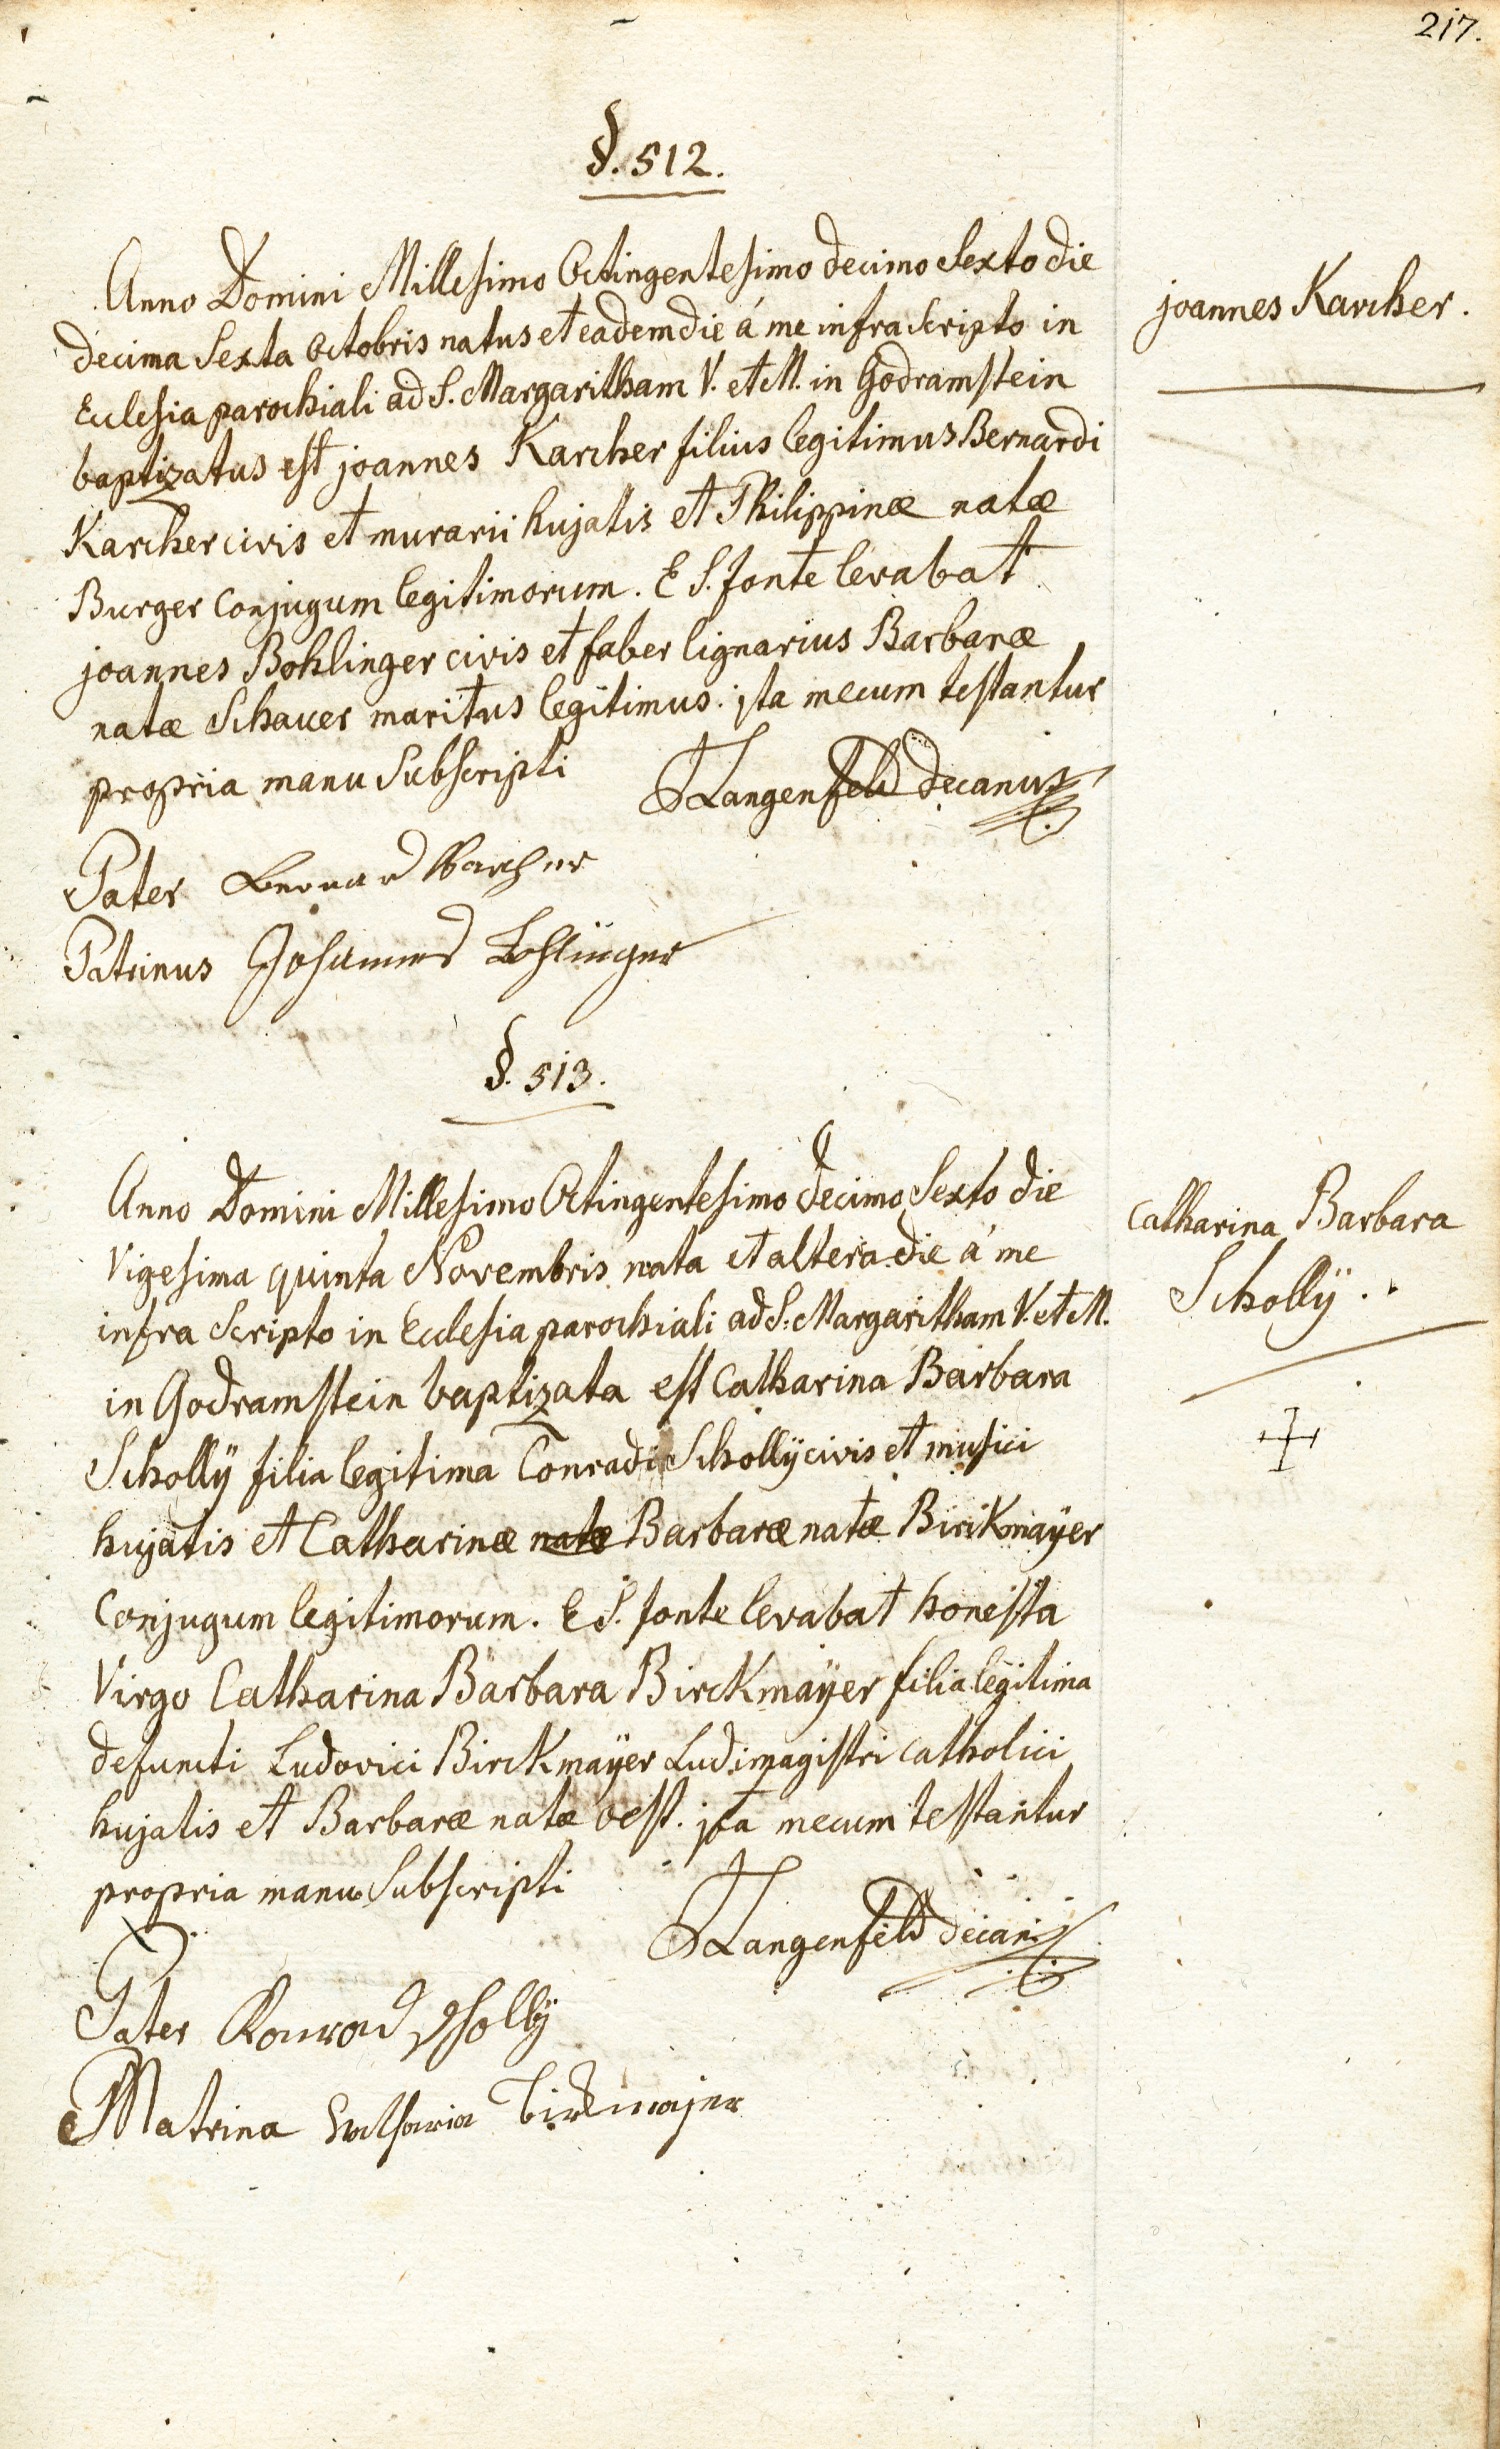 217.
§. 512.
Anno Domini Millesimo Octingentesimo decimo Sexto die
joannes Karcher.
decima Sexta Octobris natus et eadem die á me infra Scripto in
Ecclesia parochiali ad S. Margaritham V. et M. in Godramstein
baptizatus est joannes Karcher filius legitimus Bernardi
Karcher civis et murarii hujatis et Philippinæ natæ
Burger Conjugum legitimorum. E S. fonte levabat
joannes Bohlinger civis et faber lignarius Barbaræ
natæ Schauer maritus legitimus. jta mecum testantur
propria manu Subscripti
Langenfeld Decanus
Pater Bernard Karcher
Patrinus Johannes Bohlinger
§. 513.
Anno Domini Millesimo Octingentesimo decimo Sexto die
Catharina Barbara
Vigesima quinta Novembris nata et altera die á me
Schollÿ.
infra Scripto in Ecclesia parochiali ad S. Margaritham V. et M.
in Godramstein baptizata est Catharina Barbara
Schollÿ filia legitima Conradi Schollÿ civis et musici
hujatis et Catharinæ natæ Barbaræ natæ Birckmaÿer
Conjugum legitimorum. E S. fonte levabat honesta
Virgo Catharina Barbara Birckmaÿer filia legitima
defuncti Ludovici Birckmaÿer Ludimagistri catholici
hujatis et Barbaræ natæ oest. jta mecum testantur
propria manu Subscripti
Langenfeld Decan
Pater Konrad Scholly
Matrina Birckmajer